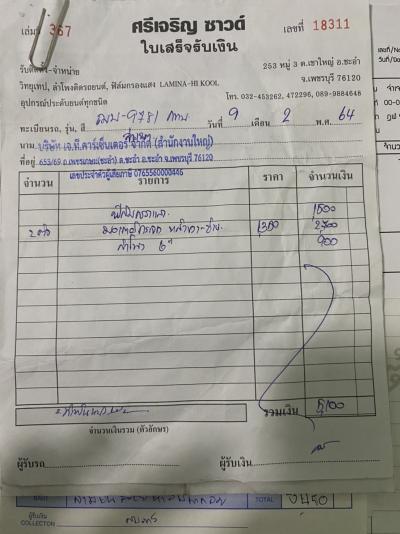 เล่มที่ 367
ศรีเจริญ ซาวด์
เลขที่ 18311
ใบเสร็จรับเงิน
รับติดตั้ง-จำหน่าย
253 หมู่ 3 ต.เขาใหญ่ อ.ชะอำ
วิทยุเทป, ลำโพงติดรถยนต์, ฟิล์มกรองแสง LAMINA-HI KOOL
จ.เพชรบุรี 76120
อุปกรณ์ประดับยนต์ทุกชนิด
โทร. 032-453262, 472296, 089-9884648
ทะเบียนรถ, รุ่น, สี 9781 กทม วันที่ 9 เดือน 2 พ.ศ. 64
นาม บริษัท เจ.ที.คาร์เซ็นเตอร์ จำกัด (สำนักงานใหญ่)
ที่อยู่ 653/69 ถ.เพชรเกษม(ชะอำ) ต.ชะอำ อ.ชะอำ จ.เพชรบุรี 76120
เลขประจำตัวผู้เสียภาษี 0765560000446
จำนวน รายการ ราคา จำนวนเงิน
1500
2 ตัว 1350 2700
ลำโพง 6" 900
รวมเงิน 5100
จำนวนเงินรวม (ตัวอักษร)
ผู้รับรถ ผู้รับเงิน
BAHT TOTAL
ผู้รับเงิน
COLLECTOR